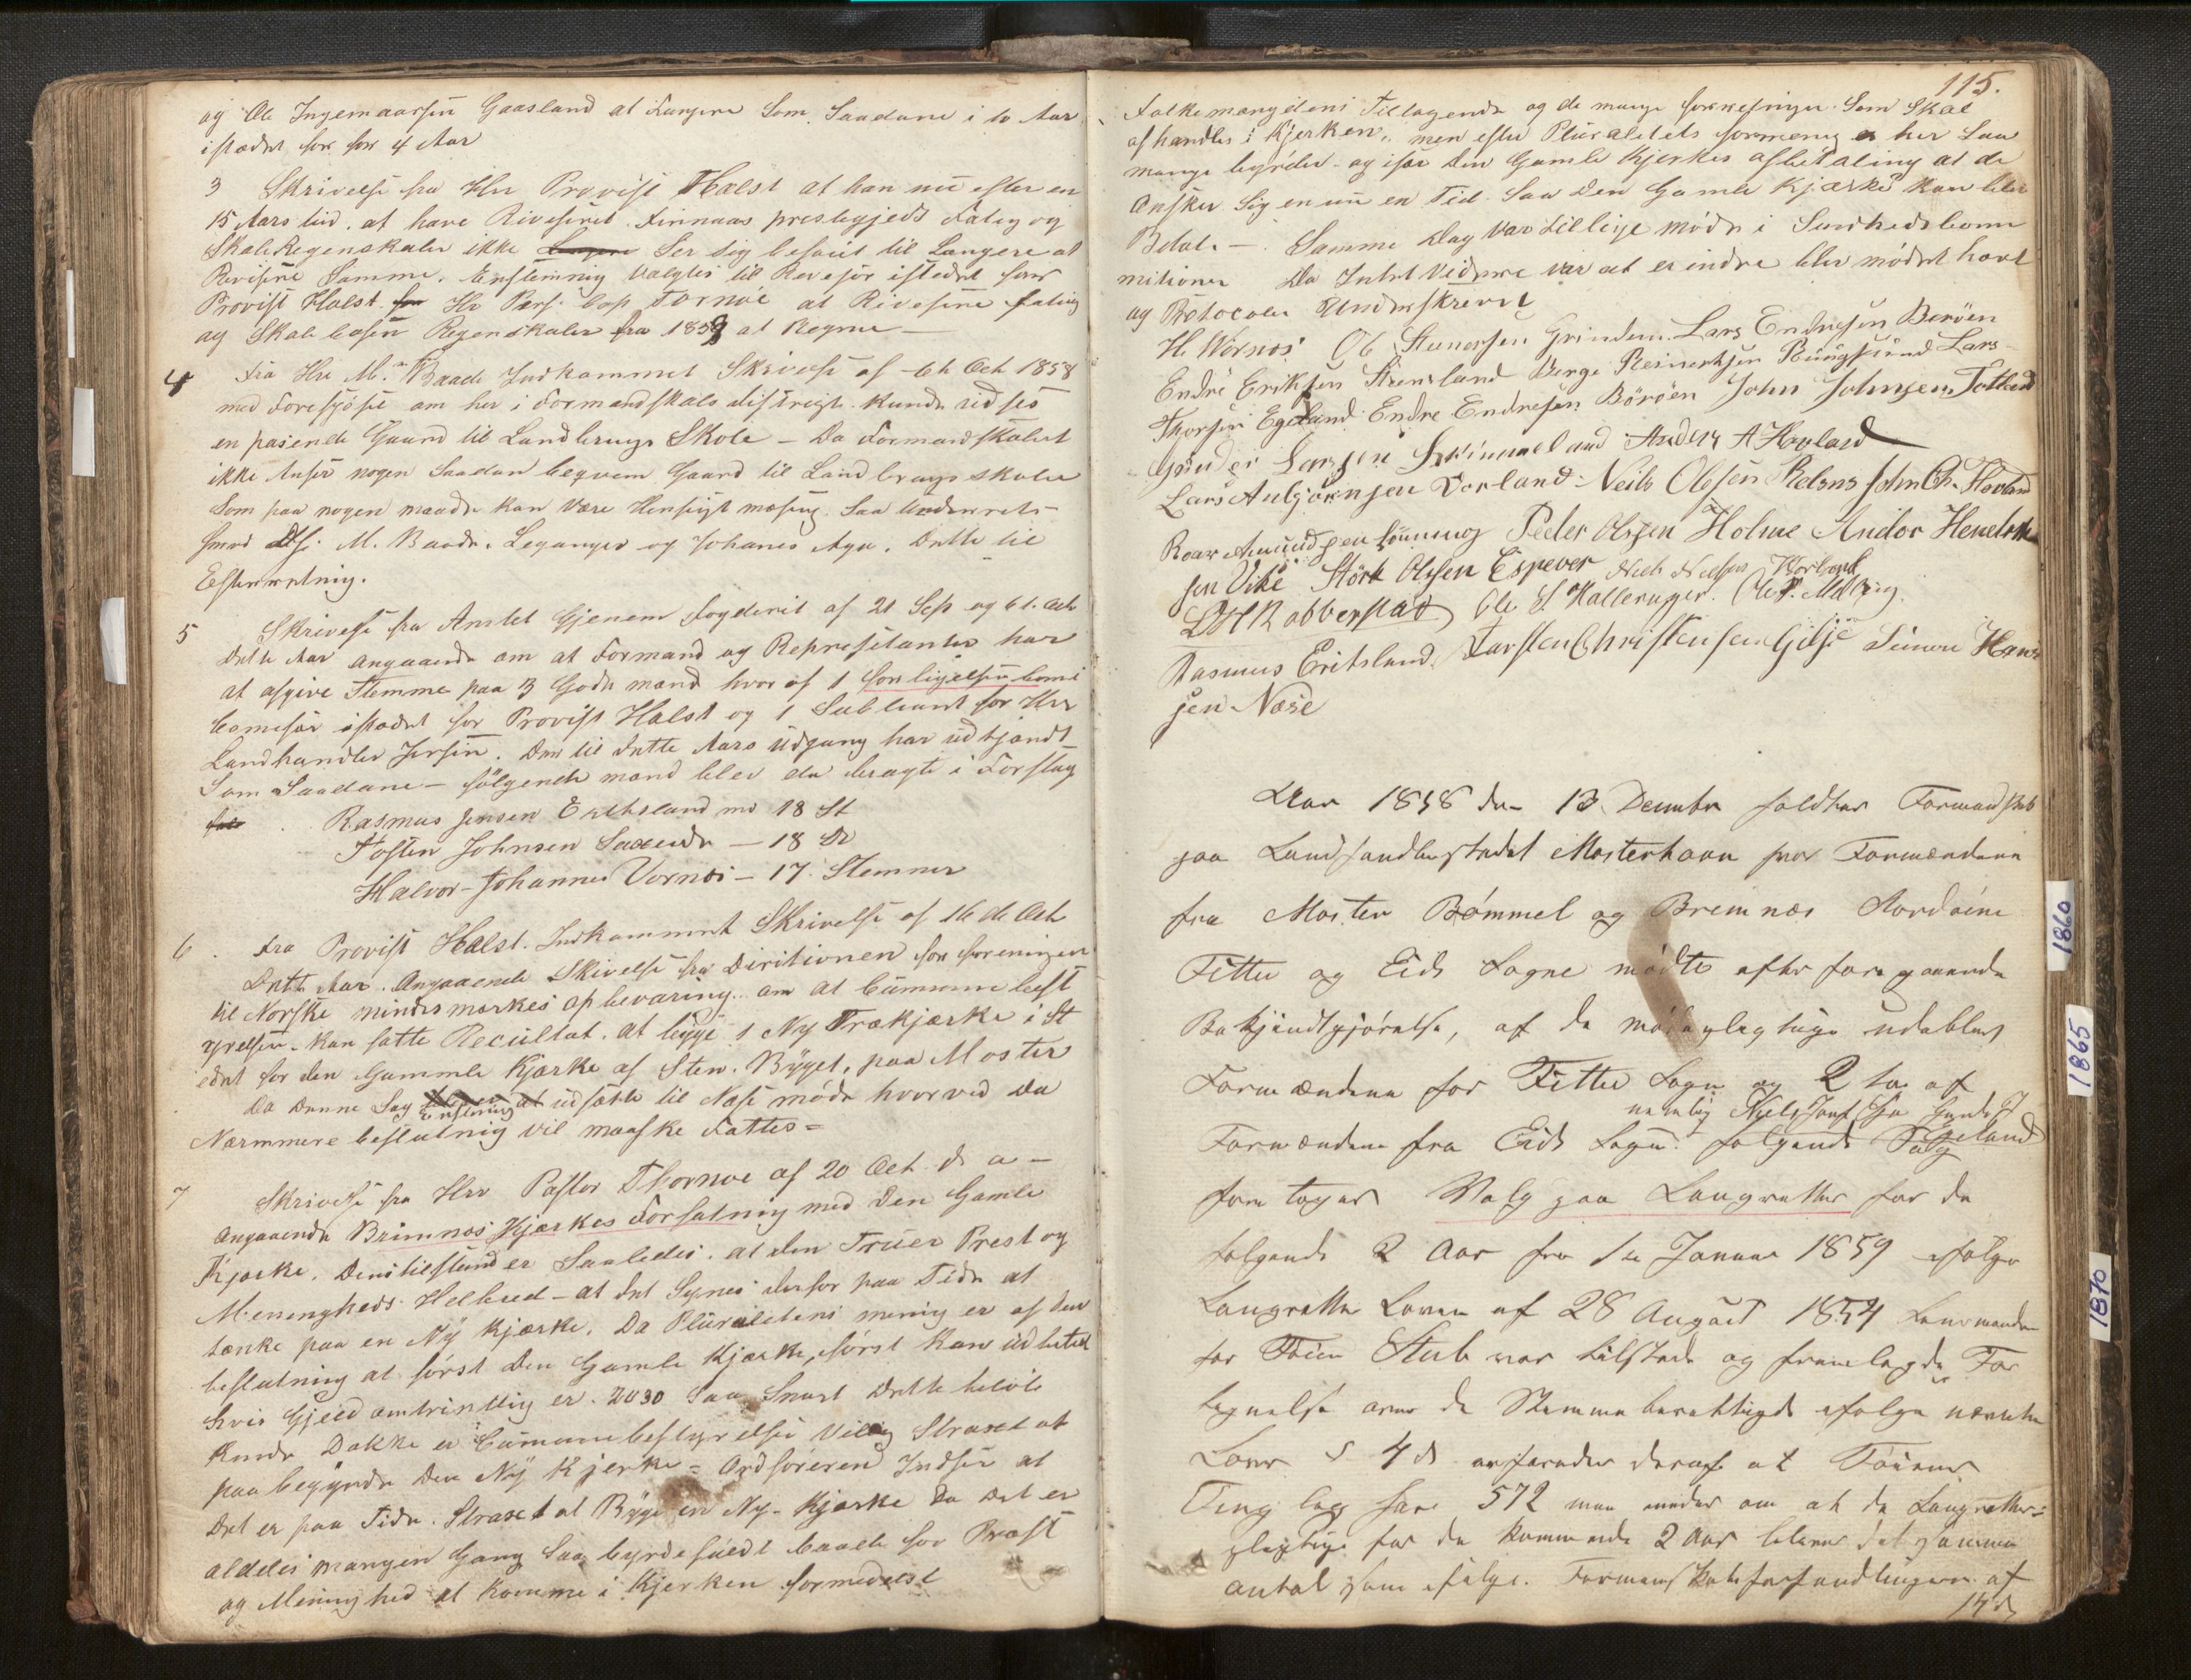 og Ole Ingemaarsen Gaasland at Fungere Som Saadane i to Aar
istædet for for 4 Aar
3 Skrivelse fra Hrr Provist Halst at han nu efter en
15 Aars tiid at have Riveseret Finnaas prestegjeds Fatig og
Skole Regenskaber ikke Ser Sig beføiet til Længere at
Revisere Samme. Enstemnig valgtes til Revesor istedet for
Provist Halst Hr Pers. Cap. Tornöe at Rivesere Fatig
og Skole Casen Regenskaber fra 1859 at Regne —
4 Fra Hrr M. Baade Indkommet Skrivelse af 6te Oct 1858
med Forespøsel om her i Formandskabs distregt kunde udses
en pasende Gaard til Landbrugs Skole — Da Formandskabet
ikke Anser nogen Saadan beqvem Gaard til Landbrugs skoler
Som paa nogen maade kan være Hensigt mæsing. Saa Underrets
hrrd M. Baade. Leganger og Johanes Aga. Dette til
Efterretnig.
5 Skrivelse fra Amtet Gjenem Fogderiet af 21 Sep og 6t. Oct
Dette Aar angaaende om at Formand og Represetanter har
at afgive Stemme paa 3 Gode mænd hvor af 1 forligelsen komi
Comesær istædet for Provist Halst og 1 Subleant for Hrr
Landhandler Jersin. Der til dette Aars Udgang har udtjændt
Som Saadane — følgende mænd blev da bragte i Forslag
Rasmus Jensen Erithsland md 18 St
Tosten Johnsen Sæxende — 18 Do
Halvor Johannes Vornæs — 17 Stemmer
6. Fra Provist Halst. Indkommet Skrivelse af 16 de Oct
Dette Aar. Angaaende Skivelse fra Diritionen for foreningen
til Norske mindesmærkes opbevaring. om at Cummune best
yrelsen kan fatte Recultat. at bygge 1 Ny Trækjærke i St
edet for den Gammle Kjærke af Sten. Byget, paa Moster
Da denne Sag Enstemig udsatte til Næste møde hvorved da
Nærmmere beslutnig vil maaske Fattes =
7 Skrivelse fra Hrr Pastor Thornøe af 20 Oct. d. a —
Angaaende Brimnæs Kjærkes Forfatnig med Den Gamle
Kjærke. Dens tilstand er Saaledes. at den Truer Prest og
Meninghets Helbred — at det Synes derfor paa Tide at
tænke paa en Ny kjærke. Da Pluralitens menig er af den
beslutning at først den Gamle Kjærke, først kan udbetal
hvis Gjeld omtrintlig er. 2030 Saa Snart Dette beløb
kunde Dække er Cummunebestyrelse Villig Straxt at
paabegynde den Ny Kjerke = Ordføreren Indser at
Det er paa Tide. Straxt at Byge en Ny Kjærke da det er
aldeles mangen Gang Saa byrdefuldt baade for Præst
og Mening hed at komme i Kjerken formedelst
115.
Folkemængdens Tiltagende og de mange forretninger Som Skal
afhandles i Kjerken. men efter Pluralitets formenig er her Saa
mange byrder og især den Gamle Kjerkes afbetaling at de
Ønsker Sig en nu en Tid. Saa Den Gamle Kjærke kan blev
Betalt —. Samme Dag var tillige møde i Sundhedskomm
mitionen Da Intet vidre var at erindre blev mødet hævt
og Protocolen Underskrevet
H. Wornæs Ob Steenersen Grindem. Lars Endresen Berøen
Endre Eriksen Steensland Børge Reinertsen Røngsund Lars
Thorsen Egeland Endre Endresen Børøen John Johnsen Totland
Lassen Svinneland Anders A Hovland
Lars Anbjørnsen Vorland Neils Olesen John Ch. Hovland
Roar Amundsen Peder Olsen Holme Andor Hendrik
sen Vike Størk Olesen Espever Niels Nielsen
LH Robberstad Ole S. Halleraager. Ole P. Melling
Rasmus Eritsland. Torsten Christensen Gilje Simon Hans
sen Næse
Aar 1858 den 13 Decembr holdtes Formandskab
paa Landhandlerstedet Mosterhavn hvor Formændene
fra Moster Bømmel og Bremnæs
Fitie og Eids Sogne mødte efter foregaaende
Bekjendtgjørelse, af de mødepligtige udeblev
Formændene for Fitie Sogn og 2 to af
nemlig
Formændene fra Eids Sogn. følgende Valg
foretoges Valg paa Laugretter for de
følgende 2 Aar fra 1ste Januar 1859 ifølge
Laugrette Loven af 28 August 1854 Lensmanden
for Føien Stub var tilstede og fremlagde For
tegnelse over de Stemmeberettigede ifølge nævnte
Lovs § 4 d erfaredes deraf at Føiens
Tinglag har 572 man om at de Laugrettes
pligtige for de kommende 2 Aar bliver det samme
antal som ifølge. Formandskabsforhandlingerne af
14 d
1860
1865
1870